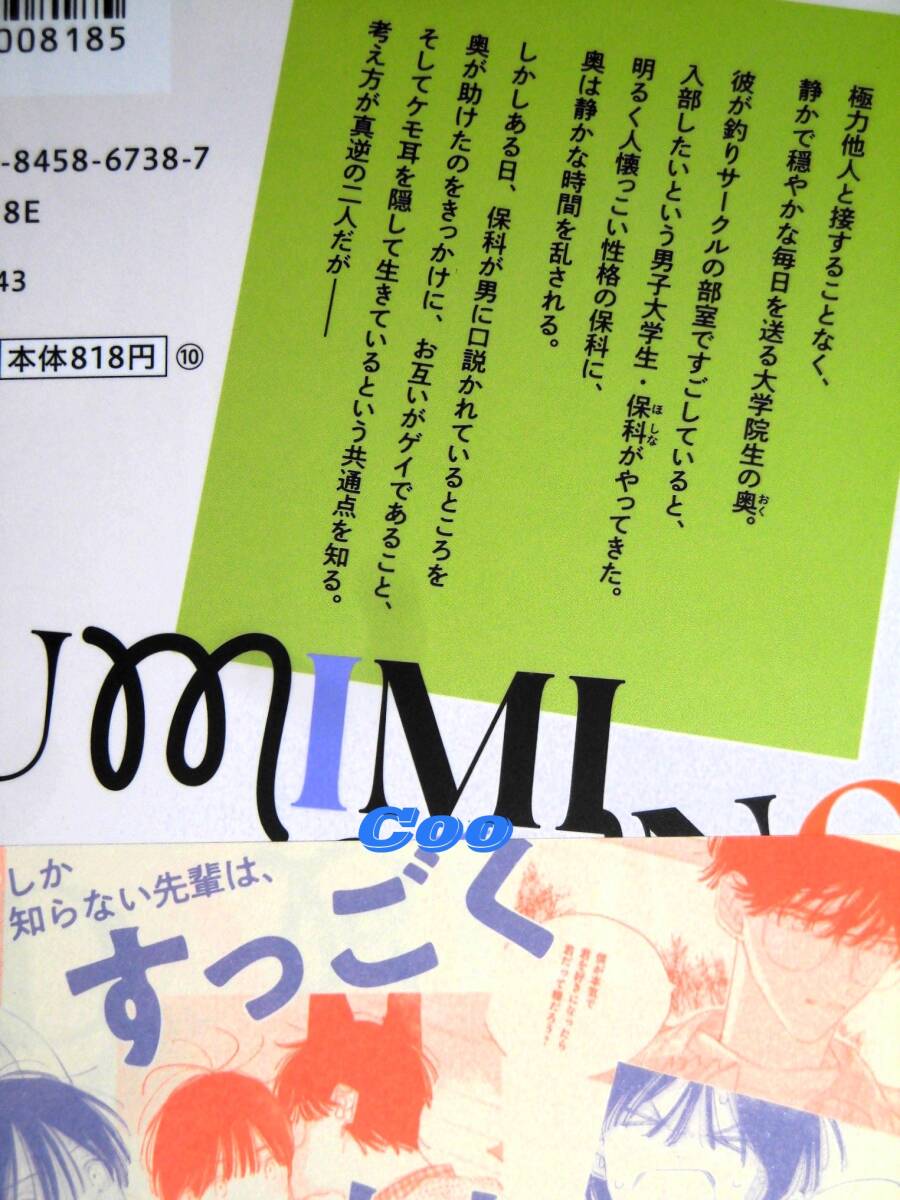 008185
-8458-6738-7
8E
43
本体818円 ⑩
極力他人と接することなく、
静かで穏やかな毎日を送る大学院生の奥。
おく
彼が釣りサークルの部室ですごしていると、
入部したいという男子大学生・保科がやってきた。
ほしな
明るく人懐っこい性格の保科に、
奥は静かな時間を乱される。
しかしある日、保科が男に口説かれているところを
奥が助けたのをきっかけに、お互いがゲイであること、
そしてケモ耳を隠して生きているという共通点を知る。
考え方が真逆の二人だが――
UMIMI
Coo
しか
知らない先輩は、
すっごく
僕が本気で
君を好きになったら
君だって嫌だろう?